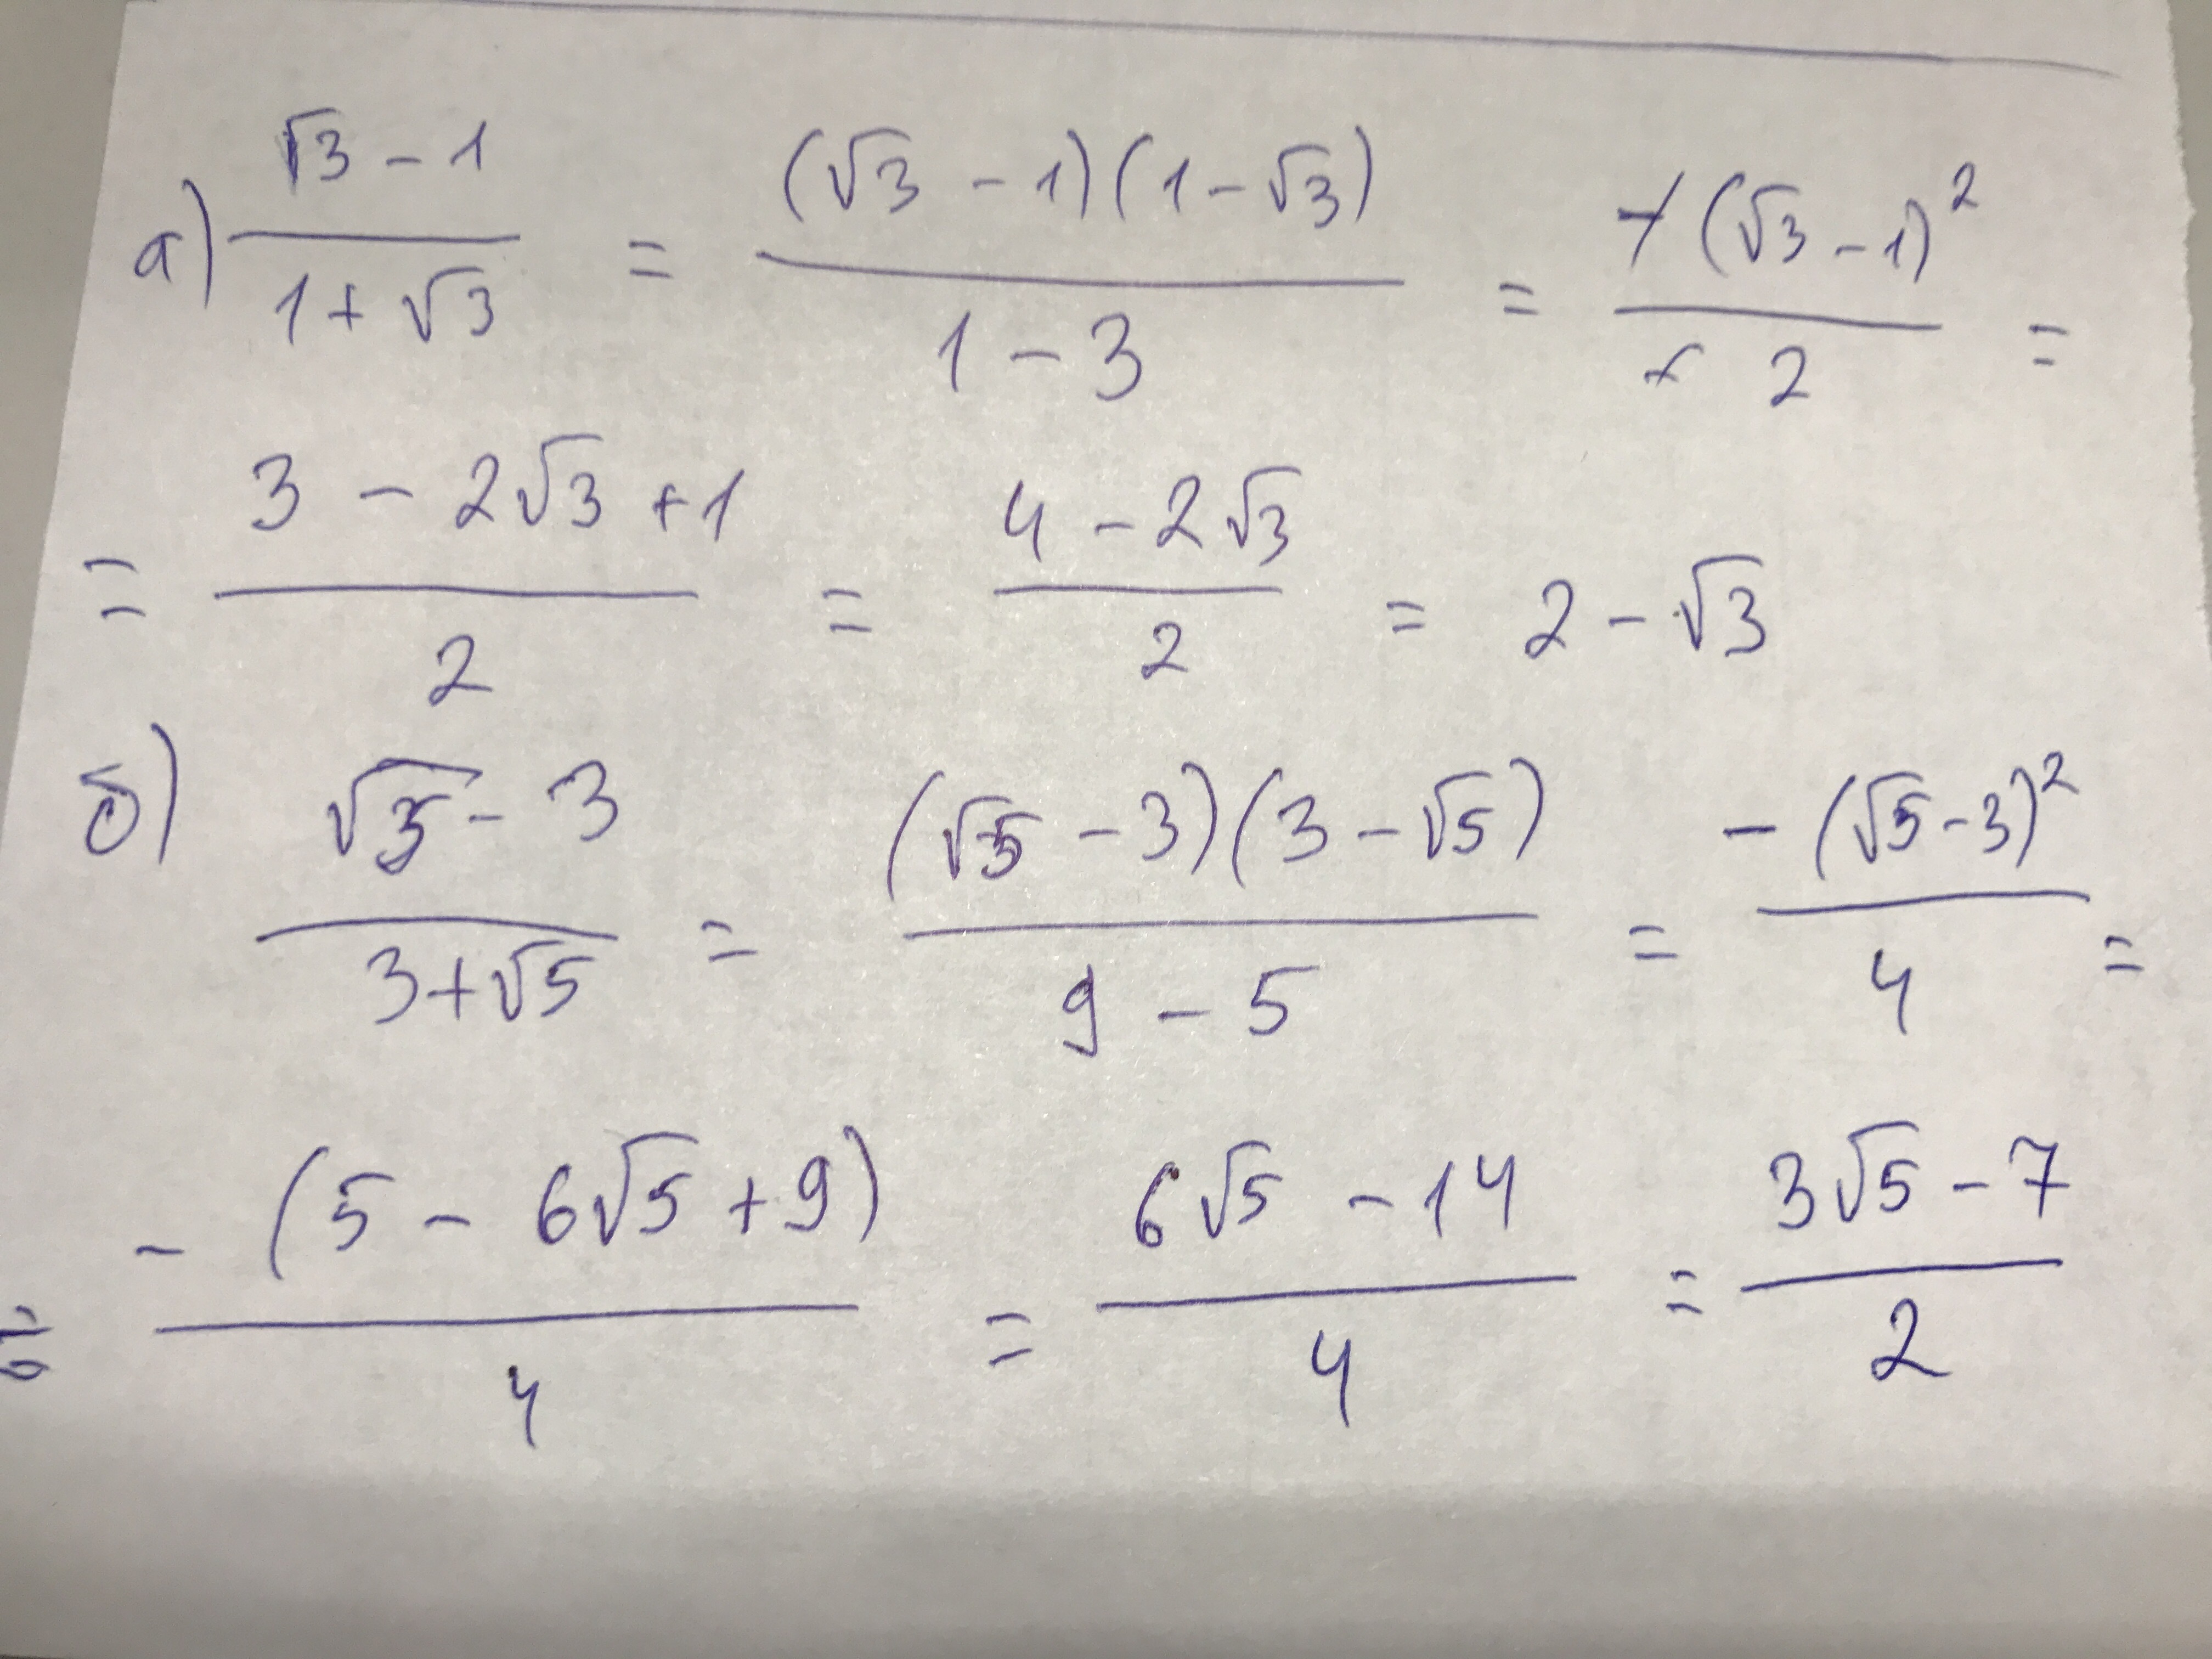 а) (√3 - 1)/(1 + √3) = ((√3 - 1)(1 - √3))/(1 - 3) = (-(√3 - 1)²)/(- 2) =
= (3 - 2√3 + 1)/2 = (4 - 2√3)/2 = 2 - √3
б) (√5 - 3)/(3 + √5) = ((√5 - 3)(3 - √5))/(9 - 5) = (-(√5 - 3)²)/4 =
= (-(5 - 6√5 + 9))/4 = (6√5 - 14)/4 = (3√5 - 7)/2